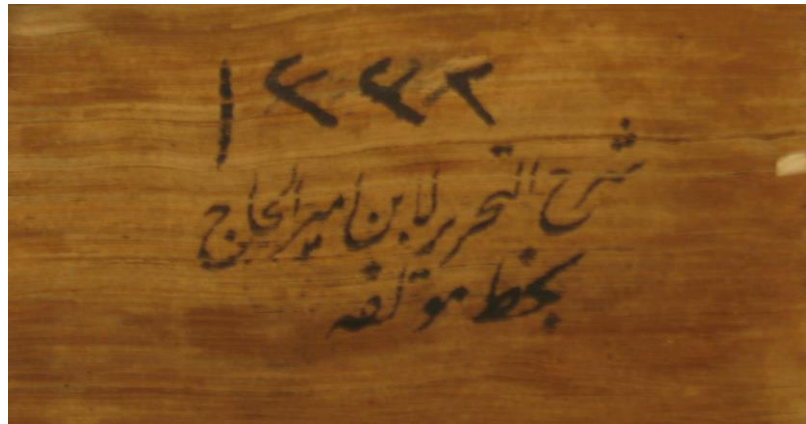 ١٢٢٢
شرح التحرير لابن امير الحاج
بخط مؤلفه